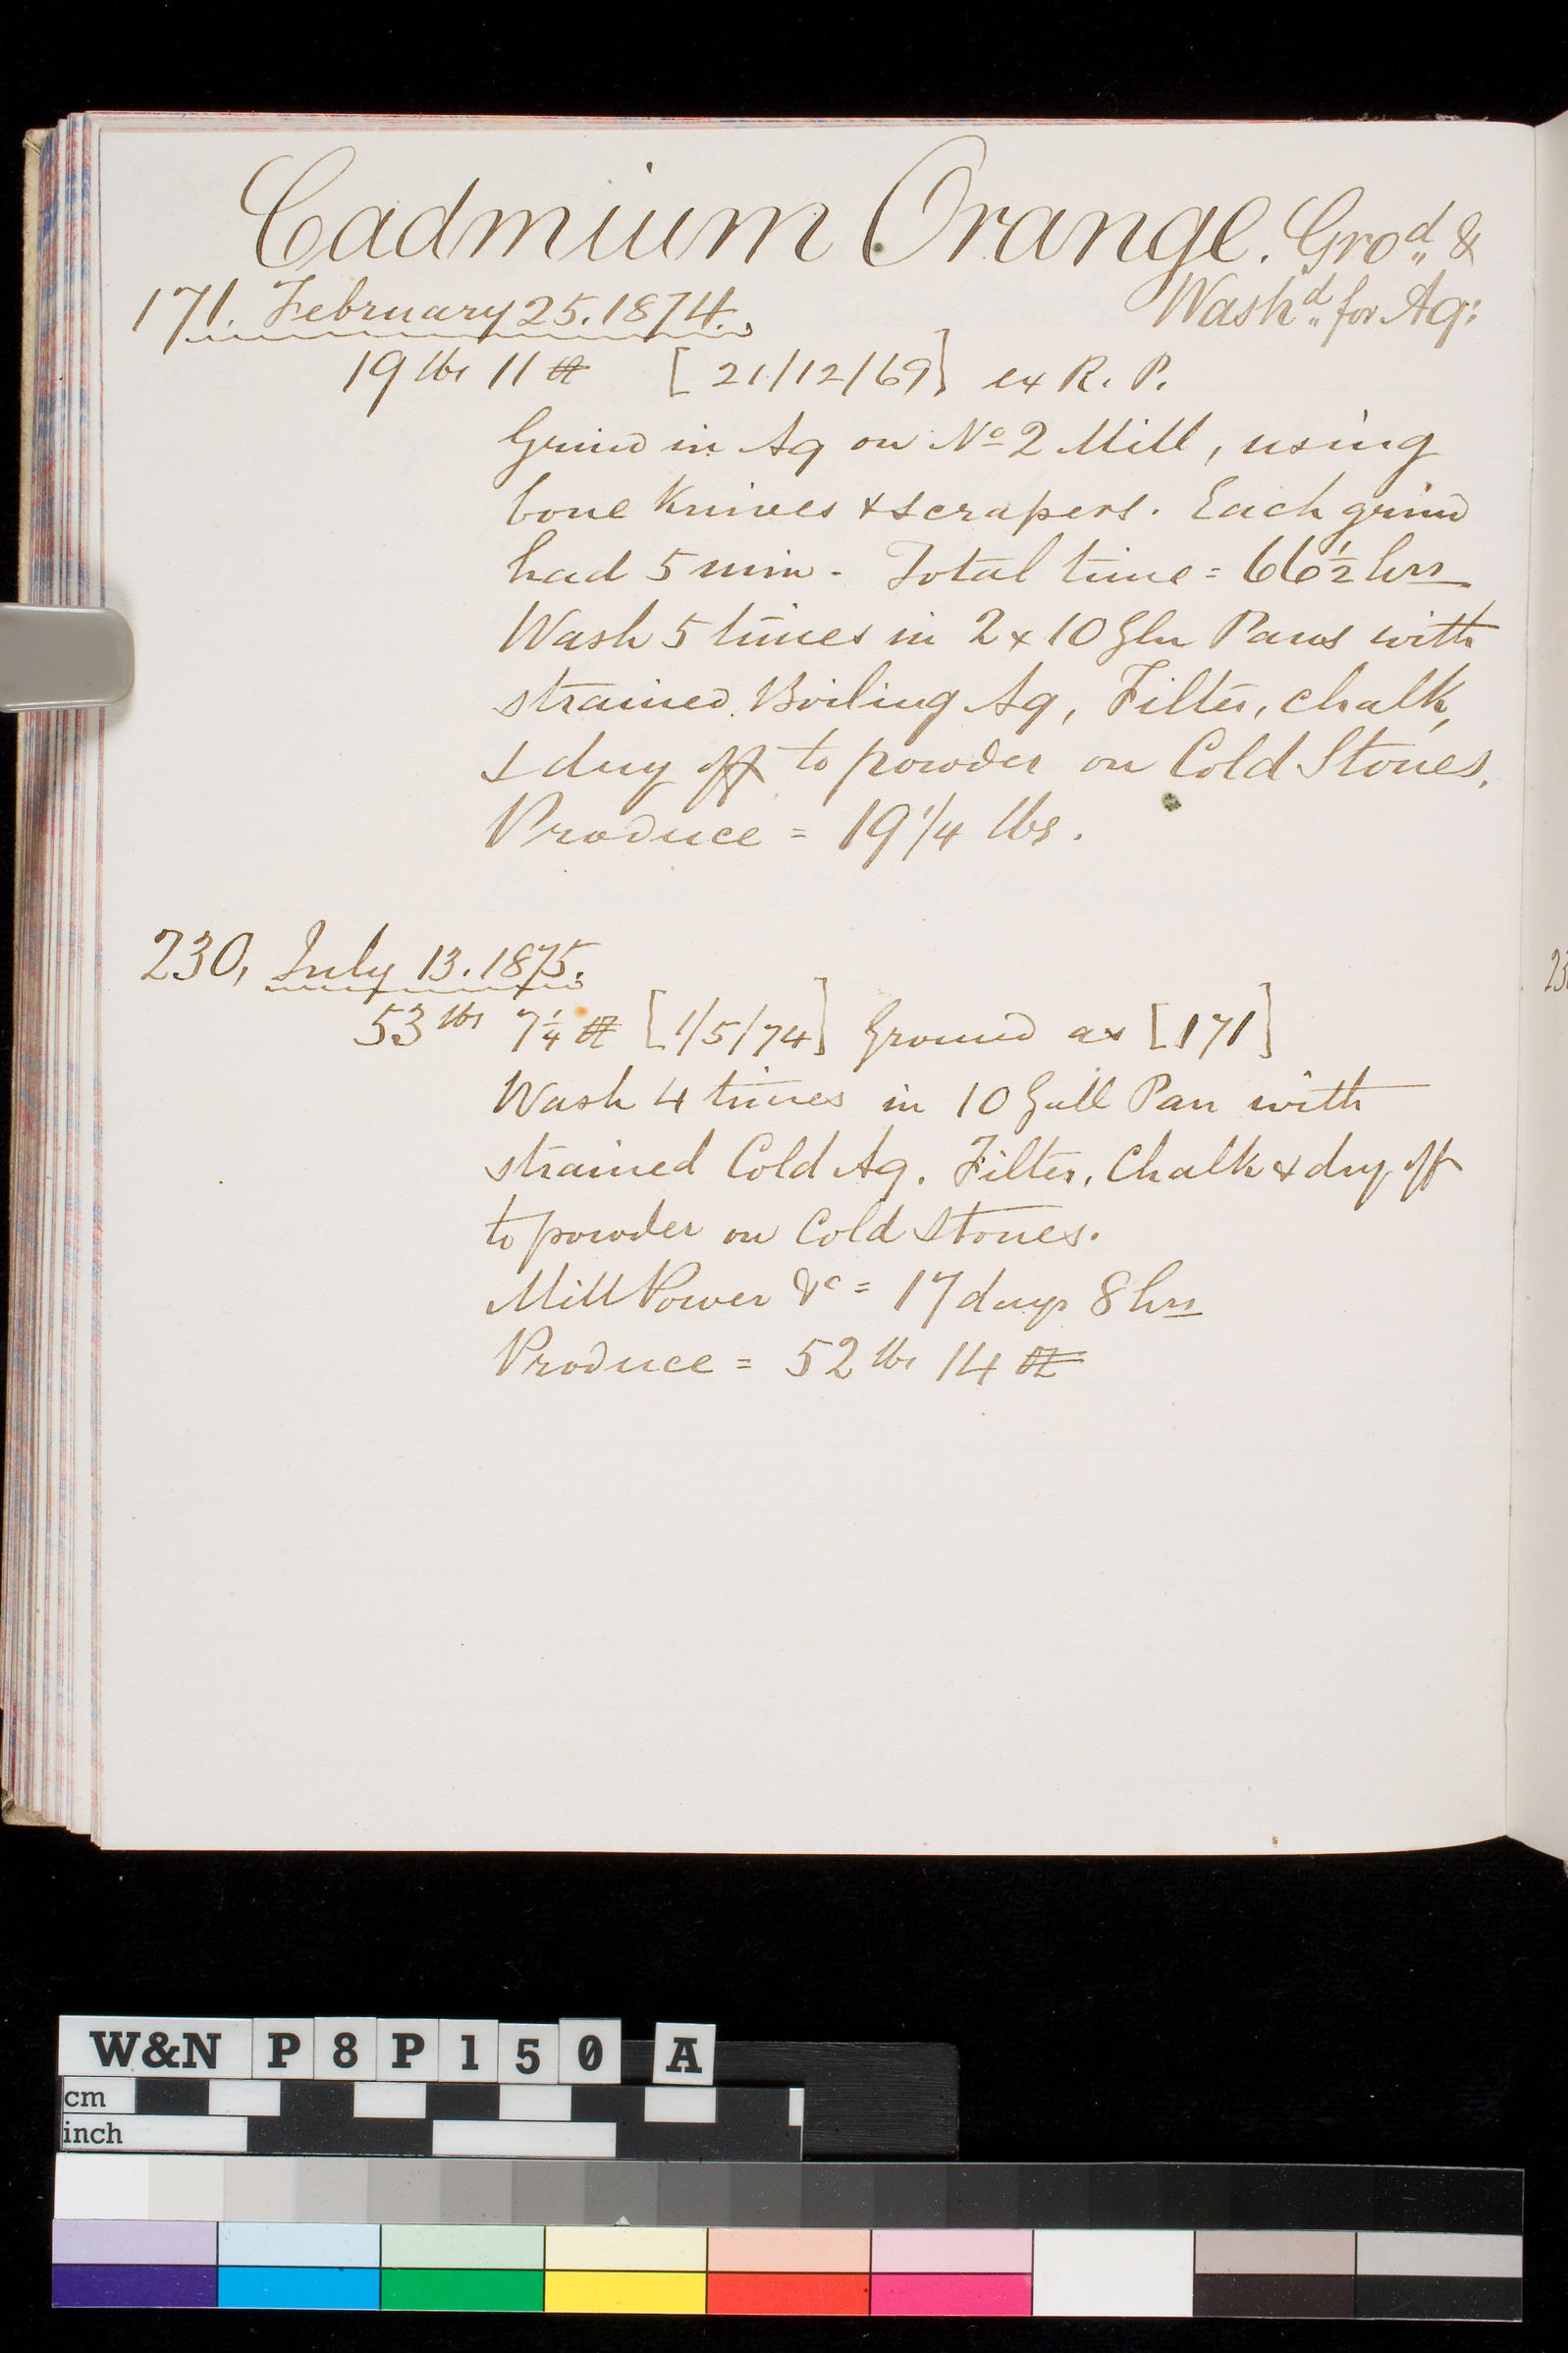 Cadmium Orange. Gro.d &
Wash.d for Aq:
171. February 25. 1874.
19 lbs 11 oz [21/12/69] ex R. P.
Grind in Aq on No 2 Mill, using
bone Knives & scrapers. Each grind
had 5 min. Total time = 66 1/2 hrs
Wash 5 times in 2 x 10 Gln Pans with
strained Boiling Aq, Filter, chalk,
& dry off to powder on Cold Stones.
Produce = 19 1/4 lbs.
230, July 13. 1875.
53 lbs 7 1/4 oz [1/5/74] Ground as [171]
Wash 4 times in 10 Gall Pan with
strained Cold Aq. Filter, Chalk & dry off
to powder on Cold Stones.
Mill Power &c = 17 days 8 hrs
Produce = 52 lbs 14 oz
W&N P8P150 A
cm
inch